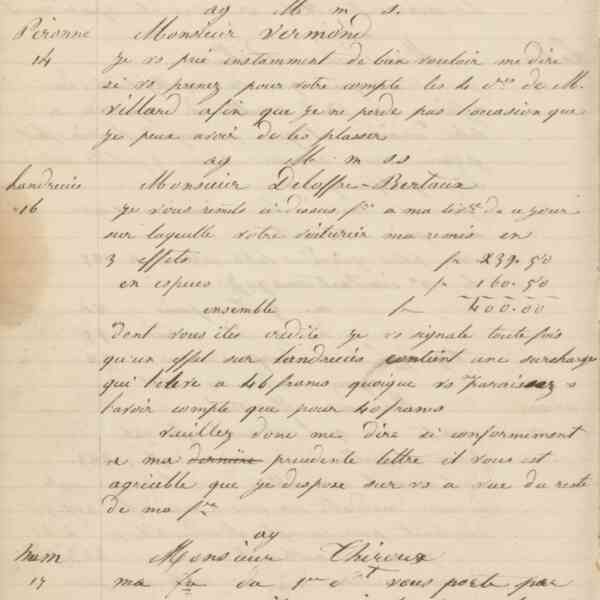 ay M m s.
Péronne Monsieur Vermond
14 Je vs prie instamment de bien vouloir me dire
si vs prenez pour votre compte les de M.
Villard afin que je ne perde pas l'occasion que
je peux avoir de les plasser
ay M m ss
Landrecies Monsieur Deloffre-Bertaux
16 Je vous remets ci-dessus fre a ma de ce jour
sur laquelle votre voiturier ma remis en
3 effets fr 239.50
en especes fr 160.50
ensemble fr 400.00
dont vous êtes crédité je vs signale toute fois
qu'un effet sur Landrecies contient une surcharge
qui l'élève a 46 francs quoique vs paraissez
l'avoir compté que pour 40 francs
Veuillez donc me dire si conformement
a ma derniére precedente lettre il vous est
agréable que je dispose sur vs a vue du reste
de ma fre
ay
Ham Monsieur Chiroux
17 ma fre du 1er vous porte par